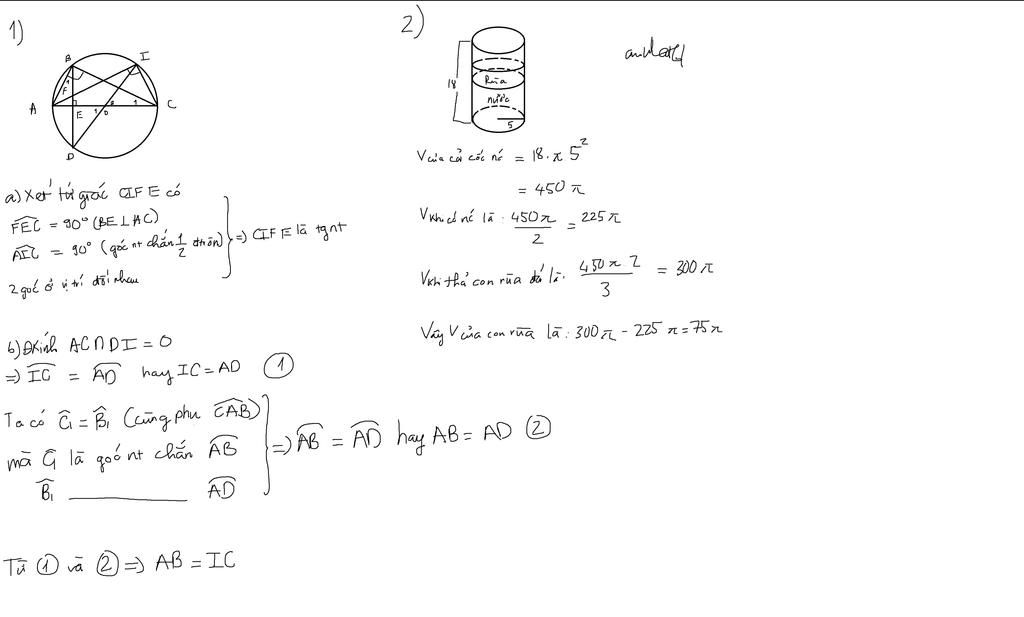 1)
B
I
A
F
1
E
1 O
1
C
D
a) Xét tứ giác CIFE có
FEC = 90° (BE⊥AC)
AIC = 90° (góc nt chắn 1/2 đtròn)
2 góc ở vị trí đối nhau
=> CIFE là tgnt
b) Đkính AC∩DI = O
=> IC = AD hay IC = AD ①
Ta có Ĉ₁ = B̂₁ (cùng phụ CAB)
mà Ĉ₁ là góc nt chắn AB
B̂₁ ________ AD
=> AB = AD hay AB = AD ②
Từ ① và ② => AB = IC
2)
18
Rùa
nước
5
V của cả cốc nc = 18.π 5²
= 450π
V khi có nc là: 450π/2 = 225π
V khi thả con rùa đá là: 450π 2/3 = 300π
Vậy V của con rùa là: 300π - 225π = 75π